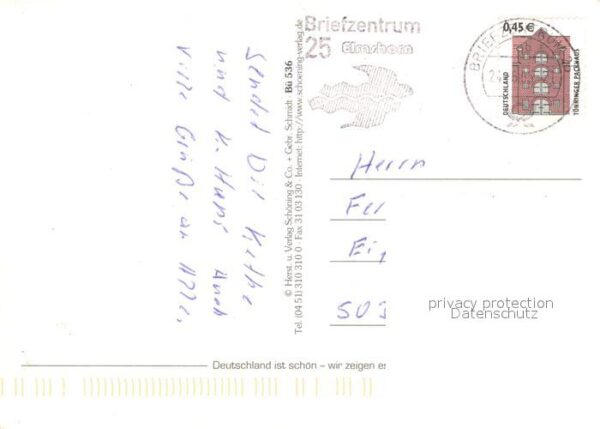 Briefzentrum
25 Elmshorn
BRIEFZ
0,45 €
DEUTSCHLAND
TÖNNINGER PACKHAUS
Sendet Dir Käthe
und K. Hans Auch
Viele Grüße an Alle,
© Herst. u. Verlag Schöning & Co. + Gebr. Schmidt Bü 536
Tel. (04 51) 310 310 0 · Fax 31 03 130 · Internet: http://www.schoening-verlag.de
Herrn
503
privacy protection
Datenschutz
Deutschland ist schön – wir zeigen es